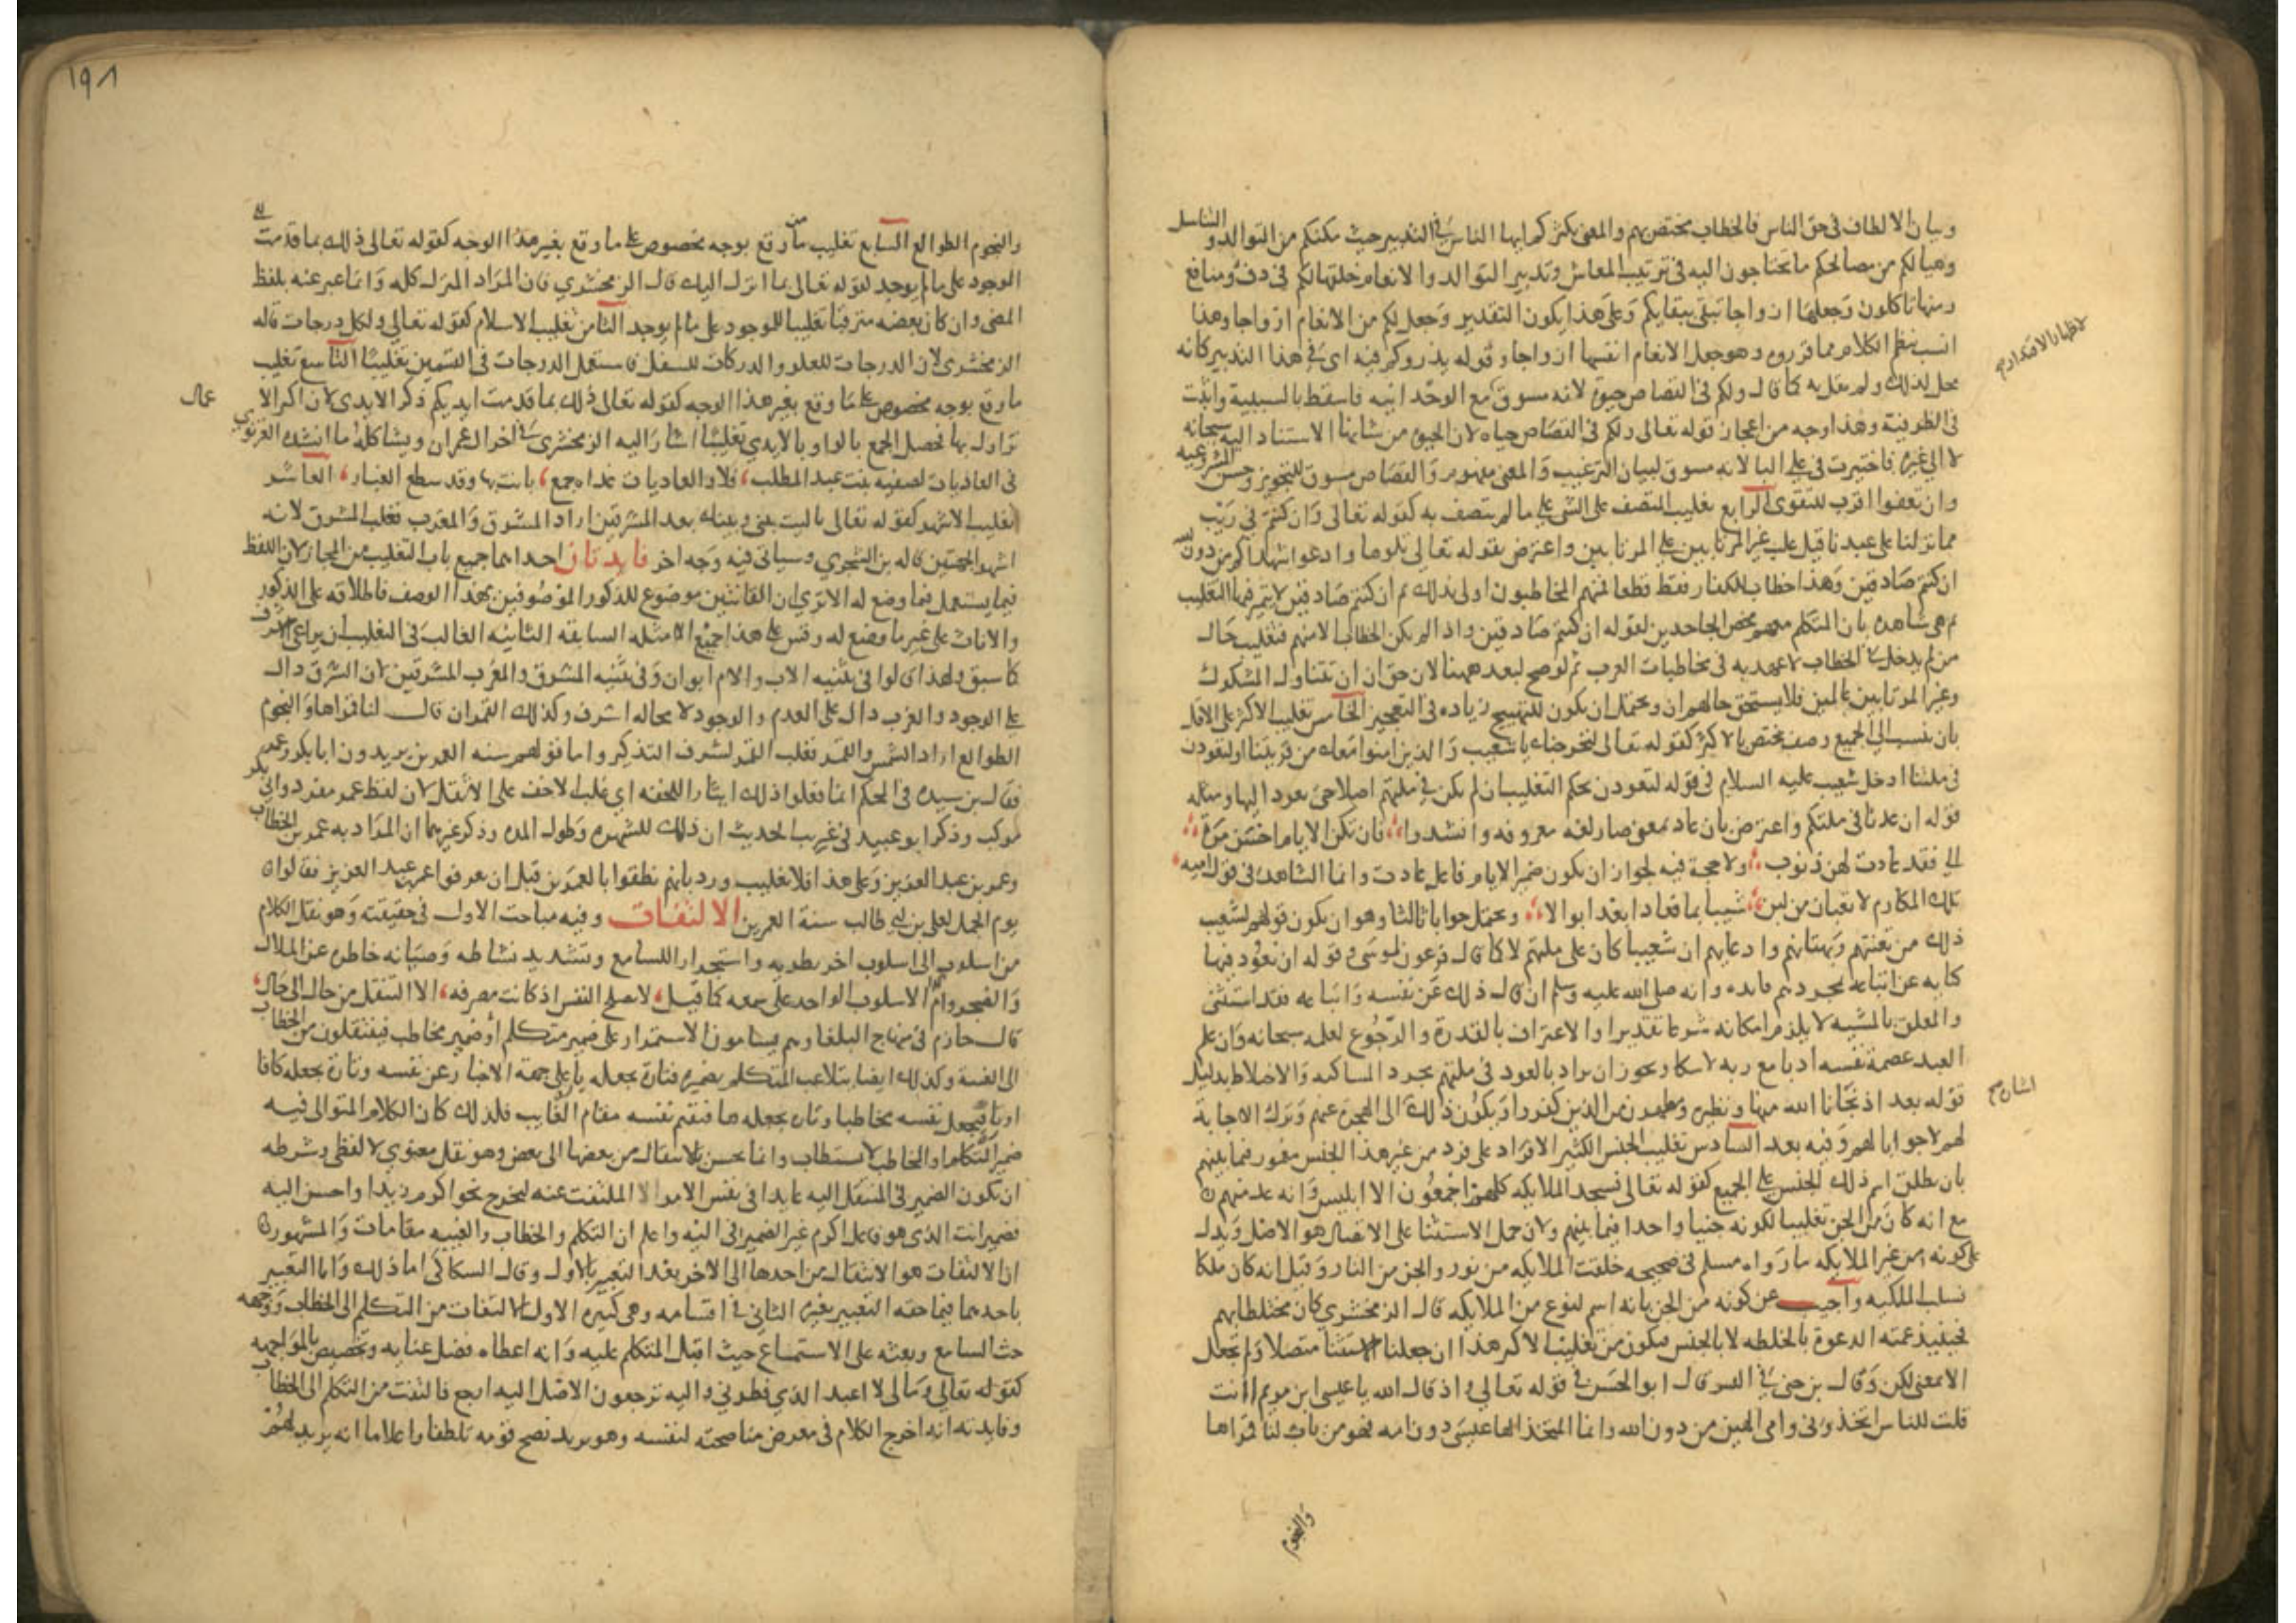 وبيان الالطاف في حق الناس فالخطاب مختص بهم والمعنى يكثركم ايها الناس في التدبير حيث مكنكم من التوالد والتناسل
وهيا لكم من مصالحكم ما تحتاجون اليه في ترتيب المعاش وتدبير التوالد والانعام خلقها لكم فيها دفء ومنافع
ومنها تاكلون وجعلها ازواجا تبقى ببقايكم وعلى هذا يكون التقدير وجعل لكم من الانعام ازواجا وهذا
انسب بنظم الكلام مما قرروه وهو جعل الانعام انفسها ازواجا وقوله يذروكم فيه اي في هذا التدبير كانه
محل لذلك ولم يقل به كما قال ولكم في القصاص حيوة لانه مسوق مع الوحدانيه فاسقط بالسببية واثبت
في الظرفية وهذا وجه من اعجاز قوله تعالى ولكم في القصاص حياه لان الحيوة من شانها الاستناد اليه سبحانه
لا الى غيره فاختيرت في على البا لانه مسوق لبيان الترغيب والمعنى مفهوم والقصاص مسوق للتجويز وحسن المشروعيه
وان تعفوا اقرب للتقوى الرابع تغليب المتصف على الشي على ما لم يتصف به كقوله تعالى وان كنتم في ريب
مما نزلنا على عبدنا قيل غلب غير المرتابين على المرتابين واعترض بقوله تعالى تلوها وادعوا شهداكم من دون الله
ان كنتم صادقين وهذا خطاب للكفار فقط قطعا فهم المخاطبون اولا بذلك ثم ان كنتم صادقين لا يتميز فيها التغليب
ثم هي شاهده بان المتكلم معهم يخص الجاحدين لقوله ان كنتم صادقين واذا لم يكن الخطاب الا منهم فتغليب حال
من لم يدخل في الخطاب لا عهد به في مخاطبات العرب
وغير المرتابين عالمين فلا يستحق حالهم ان ويحتمل ان يكون للتهييج زياده في التعجيز الخامس تغليب الاكثر على الاقل
بان ينسب الى الجميع وصف مختص بالاكثر كقوله تعالى لنخرجنك يا شعيب والذين امنوا معك من قريتنا او لتعودن
في ملتنا ادخل شعيب عليه السلام في قوله لتعودن بحكم التغليب اذ لم يكن في ملتهم اصلا حتى يعود اليها ومثله
قوله ان عدنا في ملتكم واعترض بان عاد بمعنى صار لغه معروفه وانشدوا فان تكن الايام احسن مرة
الي فقد عادت لهن ذنوب ولا حجة فيه لجواز ان يكون ضمير الايام فاعل عادت وانما الشاهد في قول اميه
تلك المكارم لا قعبان من لبن شيبا بما فعادا بعد ابوالا ويحتمل جوابا ثالثا وهو ان يكون قولهم لشعيب
ذلك من تعنتهم وبهتانهم وادعايهم ان شعيبا كان على ملتهم لا كما قال فرعون لموسى وقوله ان نعود فيها
كنايه عن اتباعه لمجرد فايده وانه صلى الله عليه وسلم ان قال ذلك عن نفسه واتباعه فقد استثنى
والمعلق بالمشيه لا يلزم امكانه شرعا تقديرا والاعتراف بالقدرة والرجوع لعلمه سبحانه وان علم
العبد عصمة نفسه ادبا مع ربه لا شكا ويجوز ان يراد بالعود في ملتهم مجرد المساكنه والاختلاط بدليل
قوله بعد اذ نجانا الله منها ونظيره ومطهرك من الذين كفروا ويكون ذلك اشارة الى الهجرة عنهم وترك الاجابة
لهم لا جوابا لهم وفيه بعد السادس تغليب الجنس الكثير الافراد على فرد من غير هذا الجنس مغمور فيما بينهم
بان يطلق اسم ذلك الجنس على الجميع كقوله تعالى فسجد الملايكه كلهم اجمعون الا ابليس وانه عد منهم
مع انه كان من الجن تغليبا لكونه جنيا واحدا فيما بينهم ولان حمل الاستثنا على الاتصال هو الاصل ويدل
على كونه من غير الملايكه ما رواه مسلم في صحيحه خلقت الملايكه من نور والجن من النار وقيل انه كان ملكا
فسلب الملكيه واجيب عن كونه من الجن بانه اسم لنوع من الملايكه قال الزمخشري كان مختلطا بهم
فحينيذ عمته الدعوة بالخلطه لا بالجنس فيكون من تغليب الاكثر هذا ان جعلنا الاستثنا متصلا ولم نجعل
الا بمعنى لكن وقال بن جني في القد قال ابو الحسن في قوله تعالى واذ قال الله يا عيسى ابن مريم اانت
قلت للناس اتخذوني وامي الهين من دون الله وانما المتخذ الها عيسى دون امه فهو من باب لنا قمراها
لاظهار الاقتدار
والنجوم
١٩٨
والنجوم الطوالع السابع تغليب ما وقع بوجه مخصوص على ما وقع بغير هذا الوجه كقوله تعالى ذلك بما قدمت
الوجود على ما لم يوجد لقوله تعالى بما انزل اليك قال الزمخشري فان المراد المنزل كله وانما عبر عنه بلفظ
المضي وان كان بعضه مترقبا تغليبا للموجود على ما لم يوجد الثامن تغليب الاسلام كقوله تعالى ولكل درجات قاله
الزمخشري لان الدرجات للعلو والدركات للسفل فاستعمل الدرجات في القسمين تغليبا التاسع تغليب
ما وقع بوجه مخصوص على ما وقع بغير هذا الوجه كقوله تعالى ذلك بما قدمت ايديكم ذكر الايدي لان اكثر الاعمال
تزاول بها فحصل الجمع بالواو بالايدي تغليبا اشار اليه الزمخشري في اخر ال عمران ويشاكله ما انشده الغزنوي
في العاديات لصفيه بنت عبد المطلب فلا والعاديات غداه جمع بايديها وقد سطع الغبار العاشر
تغليب الاشهر كقوله تعالى يا ليت بيني وبينك بعد المشرقين اراد المشرق والمغرب فغلب المشرق لانه
اشهر الجهتين قاله بن الشجري وسياتي فيه وجه اخر فايدتان احداهما جميع باب التغليب من المجاز لان اللفظ
فيما يستعمل فيما وضع له الا ترى ان القانتين موضوع للذكور الموصوفين بهذا الوصف فاطلاقه على الذكور
والاناث على غير ما وضع له وقس على هذا جميع الامثله السابقه الثانيه الغالب في التغليب ان يراعى الاشرف
كما سبق ولهذا قالوا في تثنيه الاب والام ابوان وفي تثنيه المشرق والمغرب المشرقين لان الشرق دال
على الوجود والغرب دال على العدم والوجود لا محاله اشرف وكذلك القمران قال لنا قمراها والنجوم
الطوالع اراد الشمس والقمر فغلب القمر لشرف التذكير واما قولهم سنه العمرين يريدون ابا بكر وعمر
فقال بن سيده في المحكم انما فعلوا ذلك ايثارا للخفه اي غلب الاخف على الاثقل لان لفظ عمر مفرد وابي بكر
مركب وذكر ابو عبيد في غريب الحديث ان ذلك للشهره وطول المده وذكر غيرهما ان المراد به عمر بن الخطاب
وعمر بن عبد العزيز وعلى هذا فلا تغليب ورد بانهم نطقوا بالعمرين قبل ان يعرفوا عمر بن عبد العزيز فقالوا
يوم الجمل لعلي بن ابي طالب سنة العمرين الالتفات وفيه مباحث الاول في حقيقته وهو نقل الكلام
من اسلوب الى اسلوب اخر تطرية واستجرارا للسامع وتشديد نشاطه وصيانه خاطره عن الملال
والضجر دوام الاسلوب الواحد على سمعه كما قيل لا يصلح النفس اذ كانت مصرفه الا التنقل من حال الى حال
قال حازم في منهاج البلغا وهم يسامون الاستمرار على ضمير متكلم او ضمير مخاطب فينتقلون من الخطاب
الى الغيبة وكذلك ايضا يتلاعب المتكلم بضميره فتارة يجعله يا على جهة الاخبار عن نفسه وتارة يجعله كافا
او تا فيجعل نفسه مخاطبا وتاره يجعله ها فيقيم نفسه مقام الغايب فلذلك كان الكلام المتوالي فيه
ضمير المتكلم او المخاطب لا يستطاب وانما يحسن الانتقال من بعضها الى بعض وهو نقل معنوي لا لفظي وشرطه
ان يكون الضمير في المنتقل اليه عايدا في نفس الامر الى الملتفت عنه ليخرج نحو اكرم زيدا واحسن اليه
فضمير انت الذي هو فاعل اكرم غير الضمير في اليه واعلم ان التكلم والخطاب والغيبه مقامات والمشهور
ان الالتفات هو الانتقال من احدها الى الاخر بعد التعبير بالاول وقال السكاكي اما ذلك واما التعبير
باحدهما فيما حقه التعبير بغيره الثاني في اقسامه وهي كثيره الاول الالتفات من التكلم الى الخطاب ووجهه
حث السامع وبعثه على الاستماع حيث اقبل المتكلم عليه وانه اعطاه فضل عنايه وتخصيص بالمواجهه
كقوله تعالى ومالي لا اعبد الذي فطرني واليه ترجعون الاصل واليه ارجع فالتفت من التكلم الى الخطاب
وفايدته انه اخرج الكلام في معرض مناصحته لنفسه وهو يريد نصح قومه تلطفا واعلاما انه يريد لهم